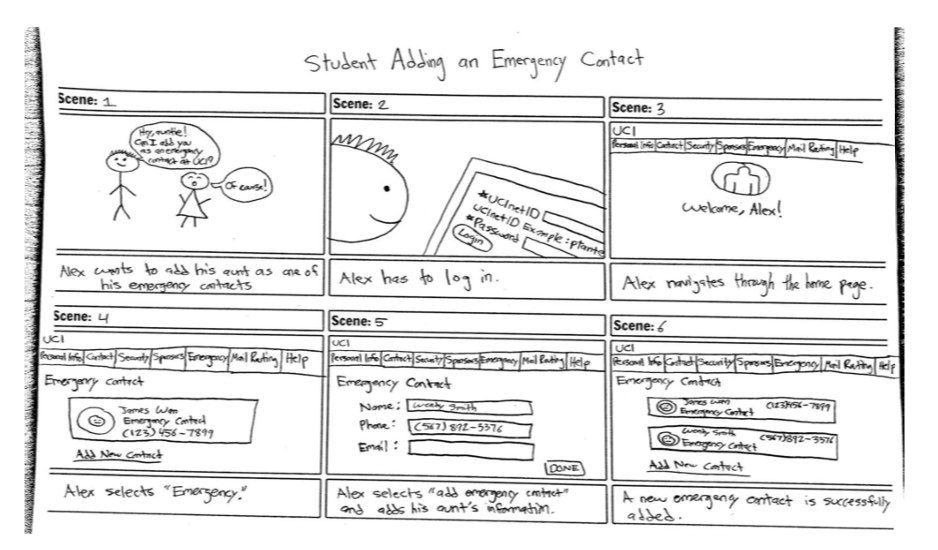 Student Adding an Emergency Contact
Scene: 1
Hey, auntie!
Can I add you
as an emergency
contact at UCI?
Of course!
Alex wants to add his aunt as one of
his emergency contacts
Scene: 2
*UCInetID
UCInetID Example: ptante
*Password
Login
Alex has to log in.
Scene: 3
UCI
Personal Info Contact Security Sponsors Emergency Mail Routing Help
Welcome, Alex!
Alex navigates through the home page.
Scene: 4
UCI
Personal Info Contact Security Sponsors Emergency Mail Routing Help
Emergency Contact
James Wen
Emergency Contact
(123) 456-7899
Add New Contact
Alex selects "Emergency."
Scene: 5
UCI
Personal Info Contact Security Sponsors Emergency Mail Routing Help
Emergency Contact
Name: Wendy Smith
Phone: (567) 892-3376
Email:
DONE
Alex selects "add emergency contact"
and adds his aunt's information.
Scene: 6
UCI
Personal Info Contact Security Sponsors Emergency Mail Routing Help
Emergency Contact
James Wen (123)456-7899
Emergency Contact
Wendy Smith (567)892-3376
Emergency Contact
Add New Contact
A new emergency contact is successfully
added.